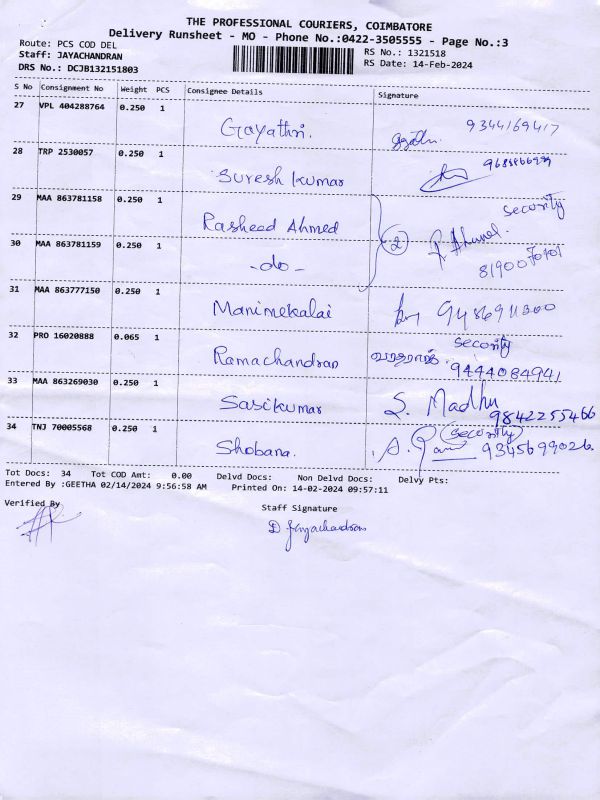 THE PROFESSIONAL COURIERS, COIMBATORE
Delivery Runsheet - MO - Phone No.:0422-3505555 - Page No.:3
Route: PCS COD DEL
RS No.: 1321518
Staff: JAYACHANDRAN
RS Date: 14-Feb-2024
DRS No.: DCJB132151803
S No Consignment No Weight PCS Consignee Details Signature
27 VPL 404288764 0.250 1
Gayathri. 9344169417
28 TRP 2530057 0.250 1
Suresh Kumar
29 MAA 863781158 0.250 1
Rasheed Ahmed 2 security
30 MAA 863781159 0.250 1
-do-
31 MAA 863777150 0.250 1
Manimekalai
32 PRO 16020888 0.065 1
Ramachandran security
9444084941
33 MAA 863269030 0.250 1
Sasikumar S. Madhu
9842255466
34 TNJ 70005568 0.250 1
Shobana. security 9345699026.
Tot Docs: 34 Tot COD Amt: 0.00 Delvd Docs: Non Delvd Docs: Delvy Pts:
Entered By :GEETHA 02/14/2024 9:56:58 AM Printed On: 14-02-2024 09:57:11
Verified By
Staff Signature
D Jayachandran